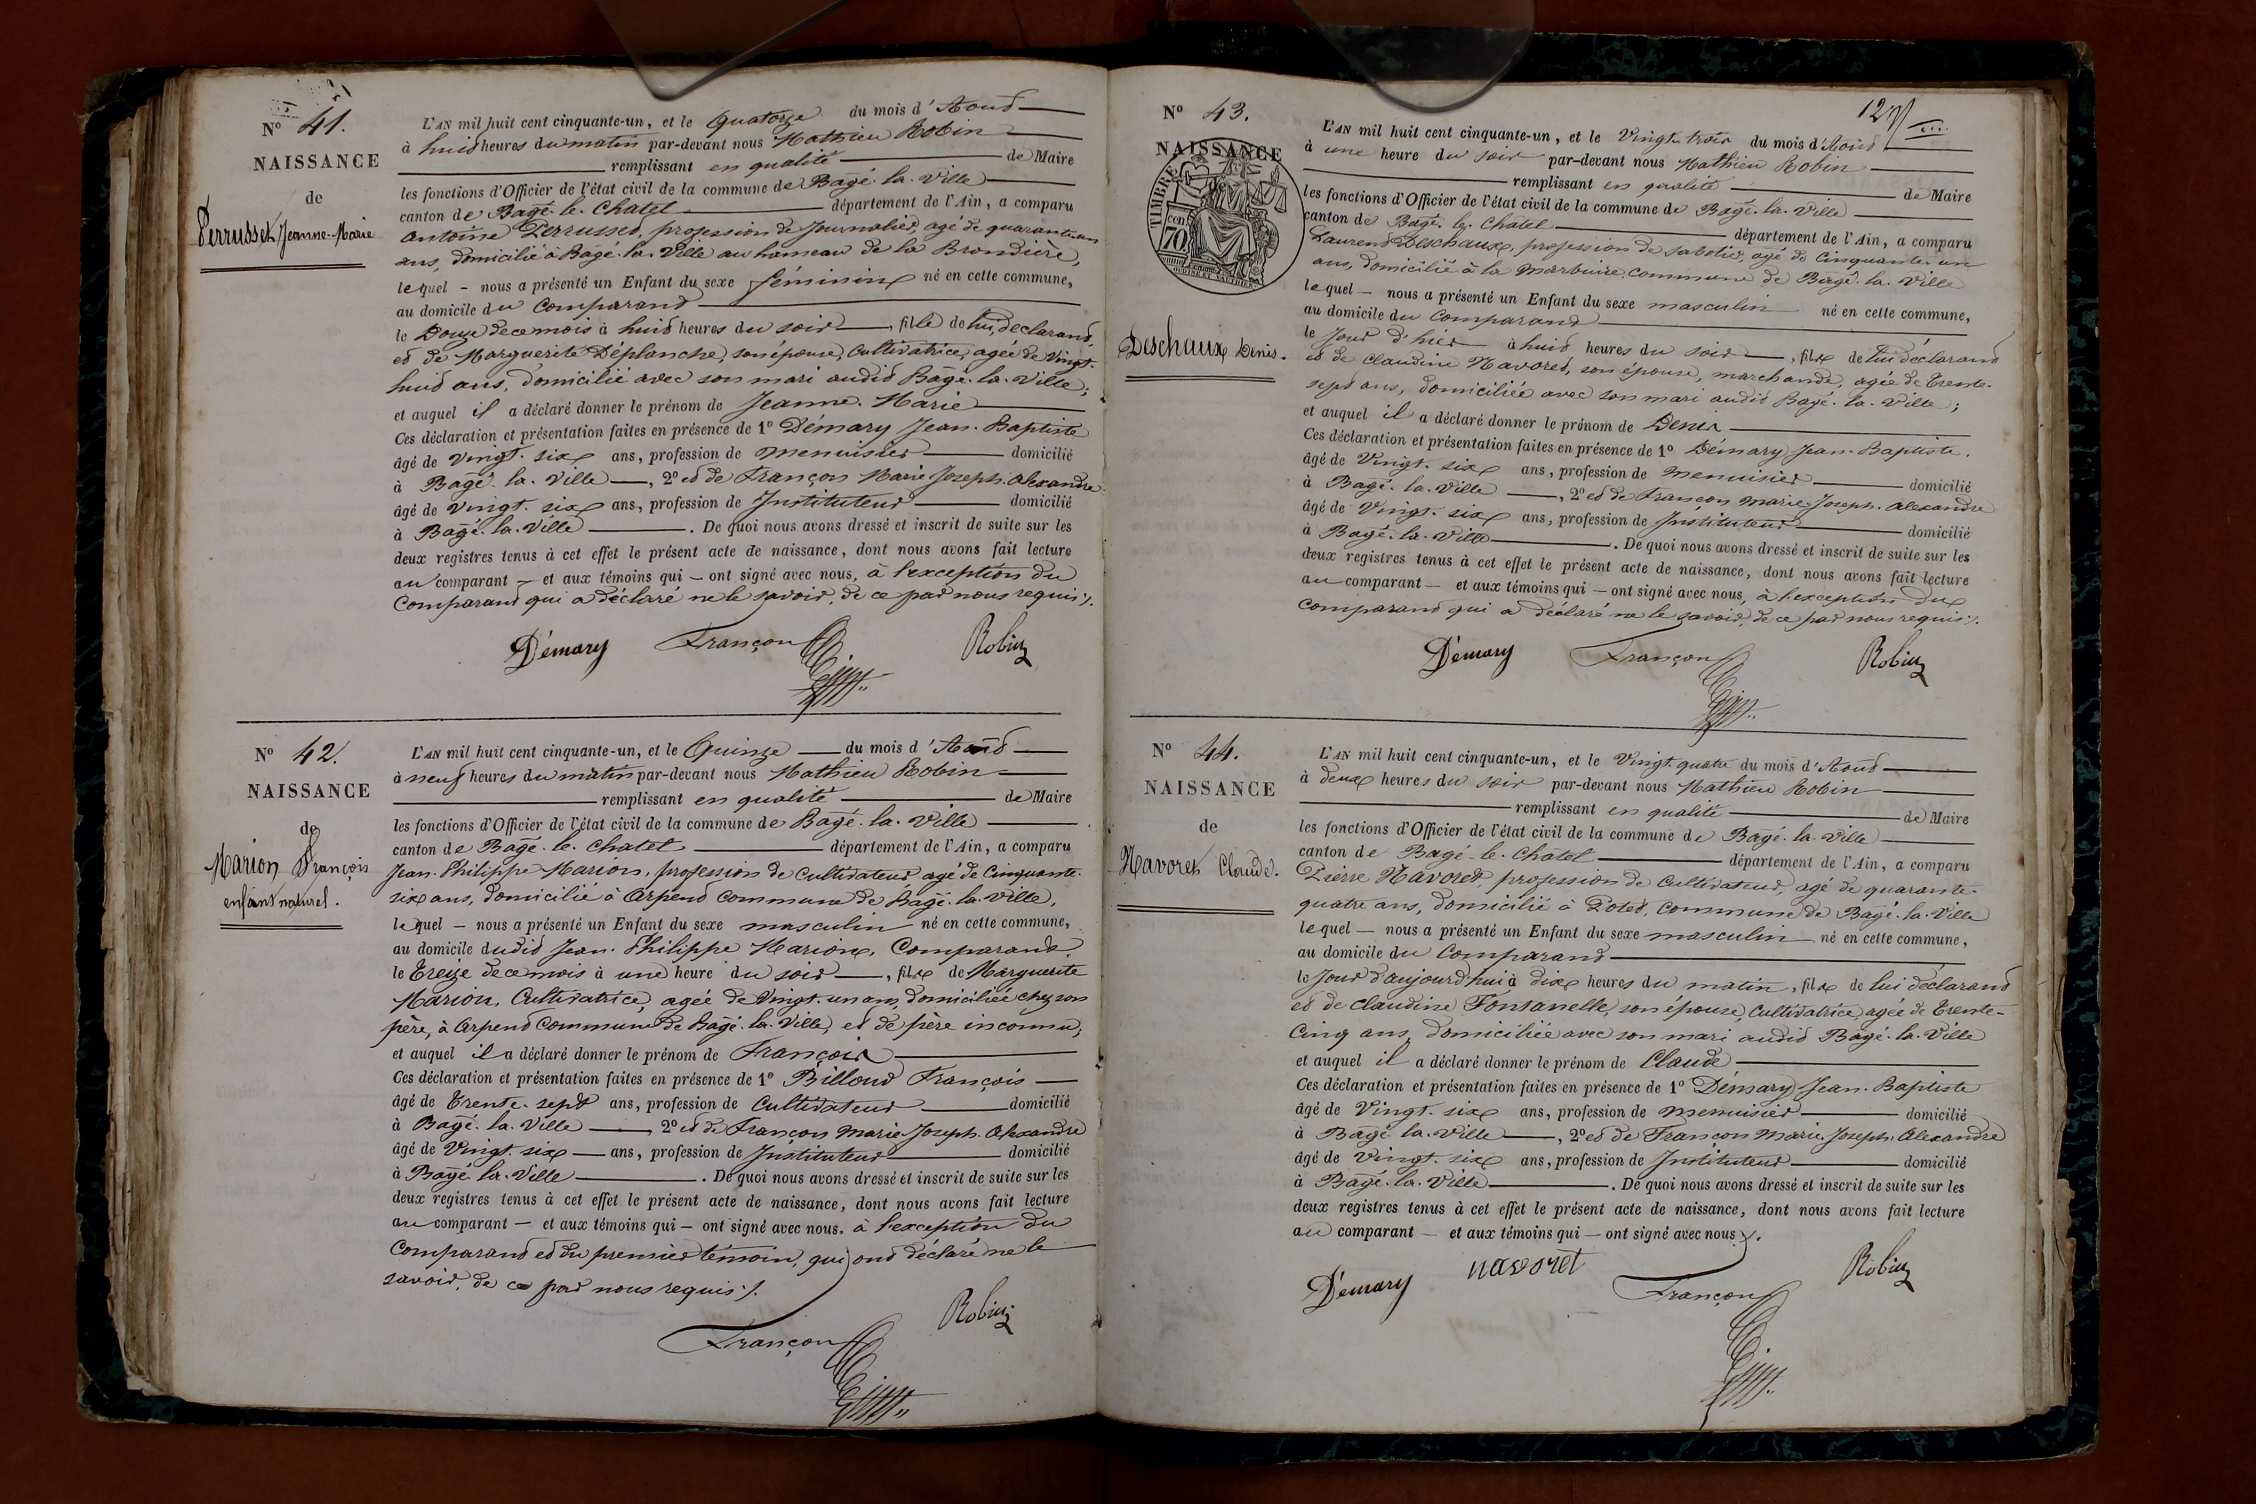 N° 41.
NAISSANCE
de
Perrusset Jeanne-Marie
L'AN mil huit cent cinquante-un, et le Quatorze du mois d'Aout
à huit heures du matin par-devant nous Mathieu Robin
remplissant en qualité de Maire
les fonctions d'Officier de l'état civil de la commune de Bagé-la-Ville
canton de Bagé-le-Chatel département de l'Ain, a comparu
Antoine Perrusset, profession de Journalier, agé de quarante-un
ans, domicilié à Bagé-la-Ville au hameau de la Brondière,
lequel - nous a présenté un Enfant du sexe féminin né en cette commune,
au domicile du Comparant
le Douze de ce mois à huit heures du soir, fille de lui déclarant,
et de Marguerite Déplanche, son épouse, Cultivatrice, agée de Vingt-
huit ans, domicilié avec son mari audit Bagé-la-Ville;
et auquel il a déclaré donner le prénom de Jeanne-Marie
Ces déclaration et présentation faites en présence de 1° Démary Jean-Baptiste
âgé de Vingt-six ans, profession de menuisier domicilié
à Bagé-la-Ville, 2° et de Françon Marie Joseph Alexandre
âgé de vingt-six ans, profession de Instituteur domicilié
à Bagé-la-Ville. De quoi nous avons dressé et inscrit de suite sur les
deux registres tenus à cet effet le présent acte de naissance, dont nous avons fait lecture
au comparant - et aux témoins qui - ont signé avec nous, à l'exception du
Comparant qui a déclaré ne le savoir, de ce par nous requis./.
Démary Françon Robin
N° 42.
NAISSANCE
de
Marion François
enfant naturel.
L'AN mil huit cent cinquante-un, et le Quinze du mois d'Août
à neuf heures du matin par-devant nous Mathieu Robin
remplissant en qualité de Maire
les fonctions d'Officier de l'état civil de la commune de Bagé-la-Ville
canton de Bagé-le-Chatel département de l'Ain, a comparu
Jean-Philippe Marion, profession de Cultivateur agé de Cinquante-
six ans, domicilié à Arpent commune de Bagé-la-Ville,
lequel - nous a présenté un Enfant du sexe masculin né en cette commune,
au domicile dudit Jean-Philippe Marion, Comparant,
le Treize de ce mois à une heure du soir, fils de Marguerite
Marion, Cultivatrice, agée de Vingt-un ans, domiciliée chez son
père, à Arpent Commune de Bagé-la-Ville, et de père inconnu;
et auquel il a déclaré donner le prénom de François
Ces déclaration et présentation faites en présence de 1° Billoud François
âgé de Trente-sept ans, profession de Cultivateur domicilié
à Bagé-la-Ville, 2° et de Françon Marie Joseph Alexandre
âgé de Vingt-six ans, profession de Instituteur domicilié
à Bagé-la-Ville. De quoi nous avons dressé et inscrit de suite sur les
deux registres tenus à cet effet le présent acte de naissance, dont nous avons fait lecture
au comparant - et aux témoins qui - ont signé avec nous, à l'exception du
Comparant et du premier témoin, qui ont déclaré ne le
savoir, de ce par nous requis./.
Françon Robin
127
N° 43.
NAISSANCE
TIMBRE
cen 70
Deschaux Denis.
L'AN mil huit cent cinquante-un, et le Vingt-trois du mois d'Aout
à une heure du soir par-devant nous Mathieu Robin
remplissant en qualité de Maire
les fonctions d'Officier de l'état civil de la commune de Bagé-la-Ville
canton de Bagé-le-Châtel département de l'Ain, a comparu
Laurent Deschaux, profession de sabotier, agé de Cinquante-un
ans, domicilié à la Marbuire commune de Bagé-la-Ville
lequel - nous a présenté un Enfant du sexe masculin né en cette commune,
au domicile du Comparant
le Jour d'hier à huit heures du soir, fils de lui déclarant
et de Claudine Navoret, son épouse, marchande, agée de Trente-
sept ans, domiciliée avec son mari audit Bagé-la-Ville;
et auquel il a déclaré donner le prénom de Denis
Ces déclaration et présentation faites en présence de 1° Démary Jean-Baptiste,
âgé de Vingt-six ans, profession de menuisier domicilié
à Bagé-la-Ville, 2° et de Françon Marie Joseph Alexandre
âgé de Vingt-six ans, profession de Instituteur domicilié
à Bagé-la-Ville. De quoi nous avons dressé et inscrit de suite sur les
deux registres tenus à cet effet le présent acte de naissance, dont nous avons fait lecture
au comparant - et aux témoins qui - ont signé avec nous, à l'exception du
Comparant qui a déclaré ne le savoir, de ce par nous requis./.
Démary Françon Robin
N° 44.
NAISSANCE
de
Navoret Claude.
L'AN mil huit cent cinquante-un, et le Vingt-quatre du mois d'Août
à deux heures du soir par-devant nous Mathieu Robin
remplissant en qualité de Maire
les fonctions d'Officier de l'état civil de la commune de Bagé-la-Ville
canton de Bagé-le-Châtel département de l'Ain, a comparu
Pierre Navoret, profession de Cultivateur, agé de quarante-
quatre ans, domicilié à Potet, Commune de Bagé-la-Ville
lequel - nous a présenté un Enfant du sexe masculin né en cette commune,
au domicile du Comparant
le Jour d'aujourd'hui à dix heures du matin, fils de lui déclarant
et de Claudine Fontanelle, son épouse, Cultivatrice, agée de Trente-
Cinq ans, domiciliée avec son mari audit Bagé-la-Ville
et auquel il a déclaré donner le prénom de Claude
Ces déclaration et présentation faites en présence de 1° Démary Jean-Baptiste
âgé de Vingt-six ans, profession de menuisier domicilié
à Bagé-la-Ville, 2° et de Françon Marie Joseph Alexandre
âgé de vingt-six ans, profession de Instituteur domicilié
à Bagé-la-Ville. De quoi nous avons dressé et inscrit de suite sur les
deux registres tenus à cet effet le présent acte de naissance, dont nous avons fait lecture
au comparant - et aux témoins qui - ont signé avec nous./.
Démary navoret Françon Robin